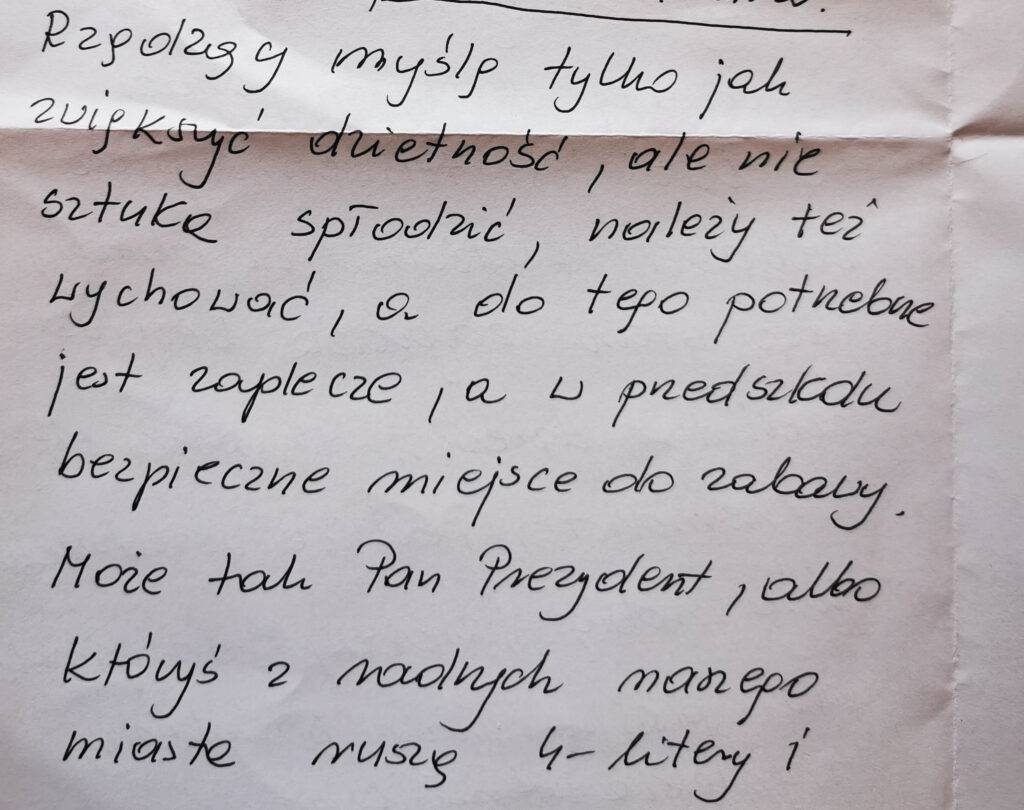 Rządzący myślą tylko jak
zwiększyć dzietność, ale nie
sztuka spłodzić, należy też
wychować, a do tego potrzebne
jest zaplecze, a w przedszkolu
bezpieczne miejsce do zabawy.
Może tak Pan Prezydent, albo
któryś z radnych naszego
miasta ruszą 4-litery i